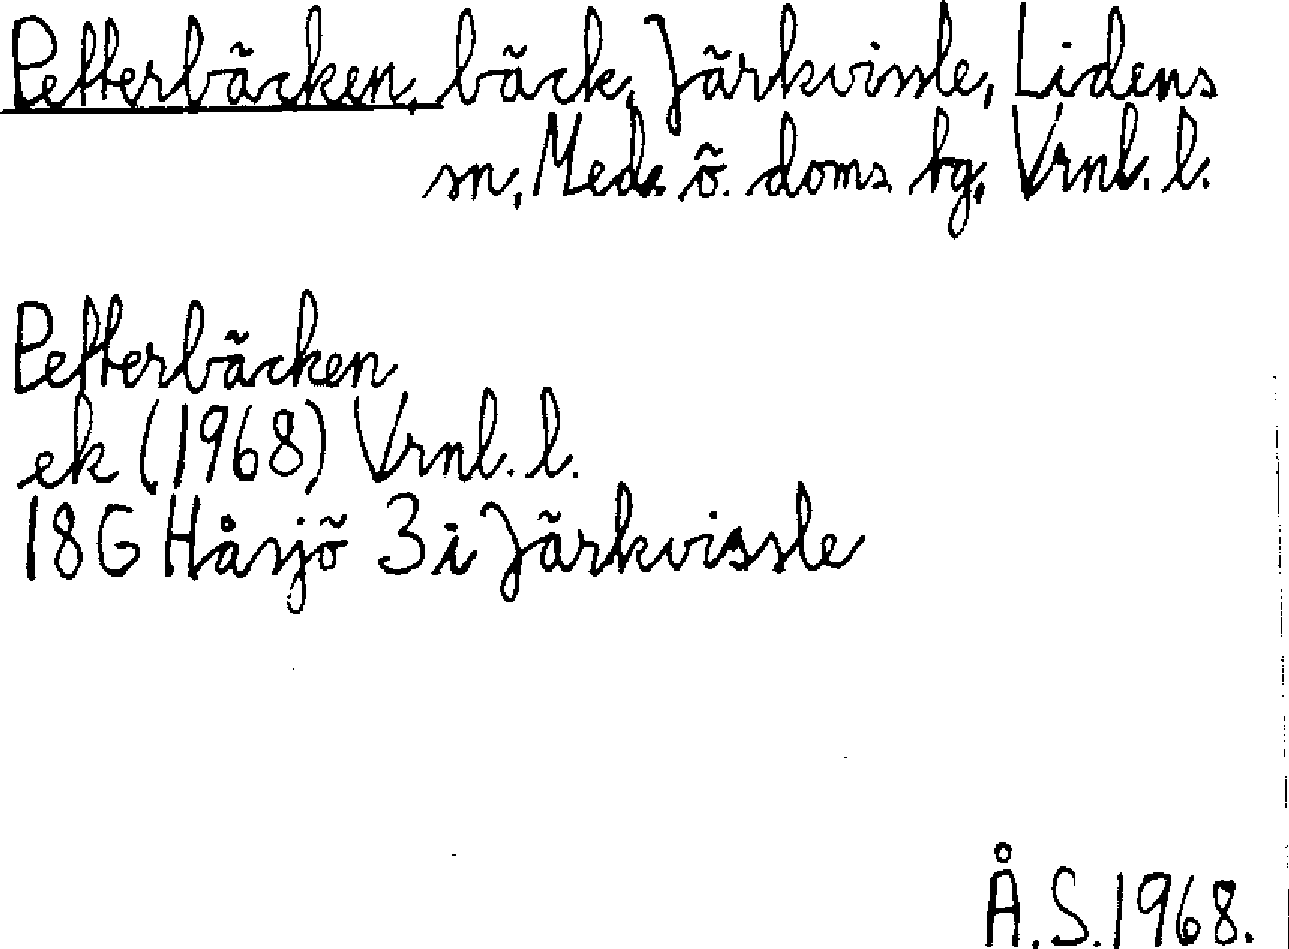 Petterbäcken, bäck, Järkvissle, Lidens
sn, Med. ö. doms bg, Vrnl. l.
Petterbäcken
ek (1968) Vrnl. l.
18G Håsjö 3i Järkvissle
Å.S. 1968.